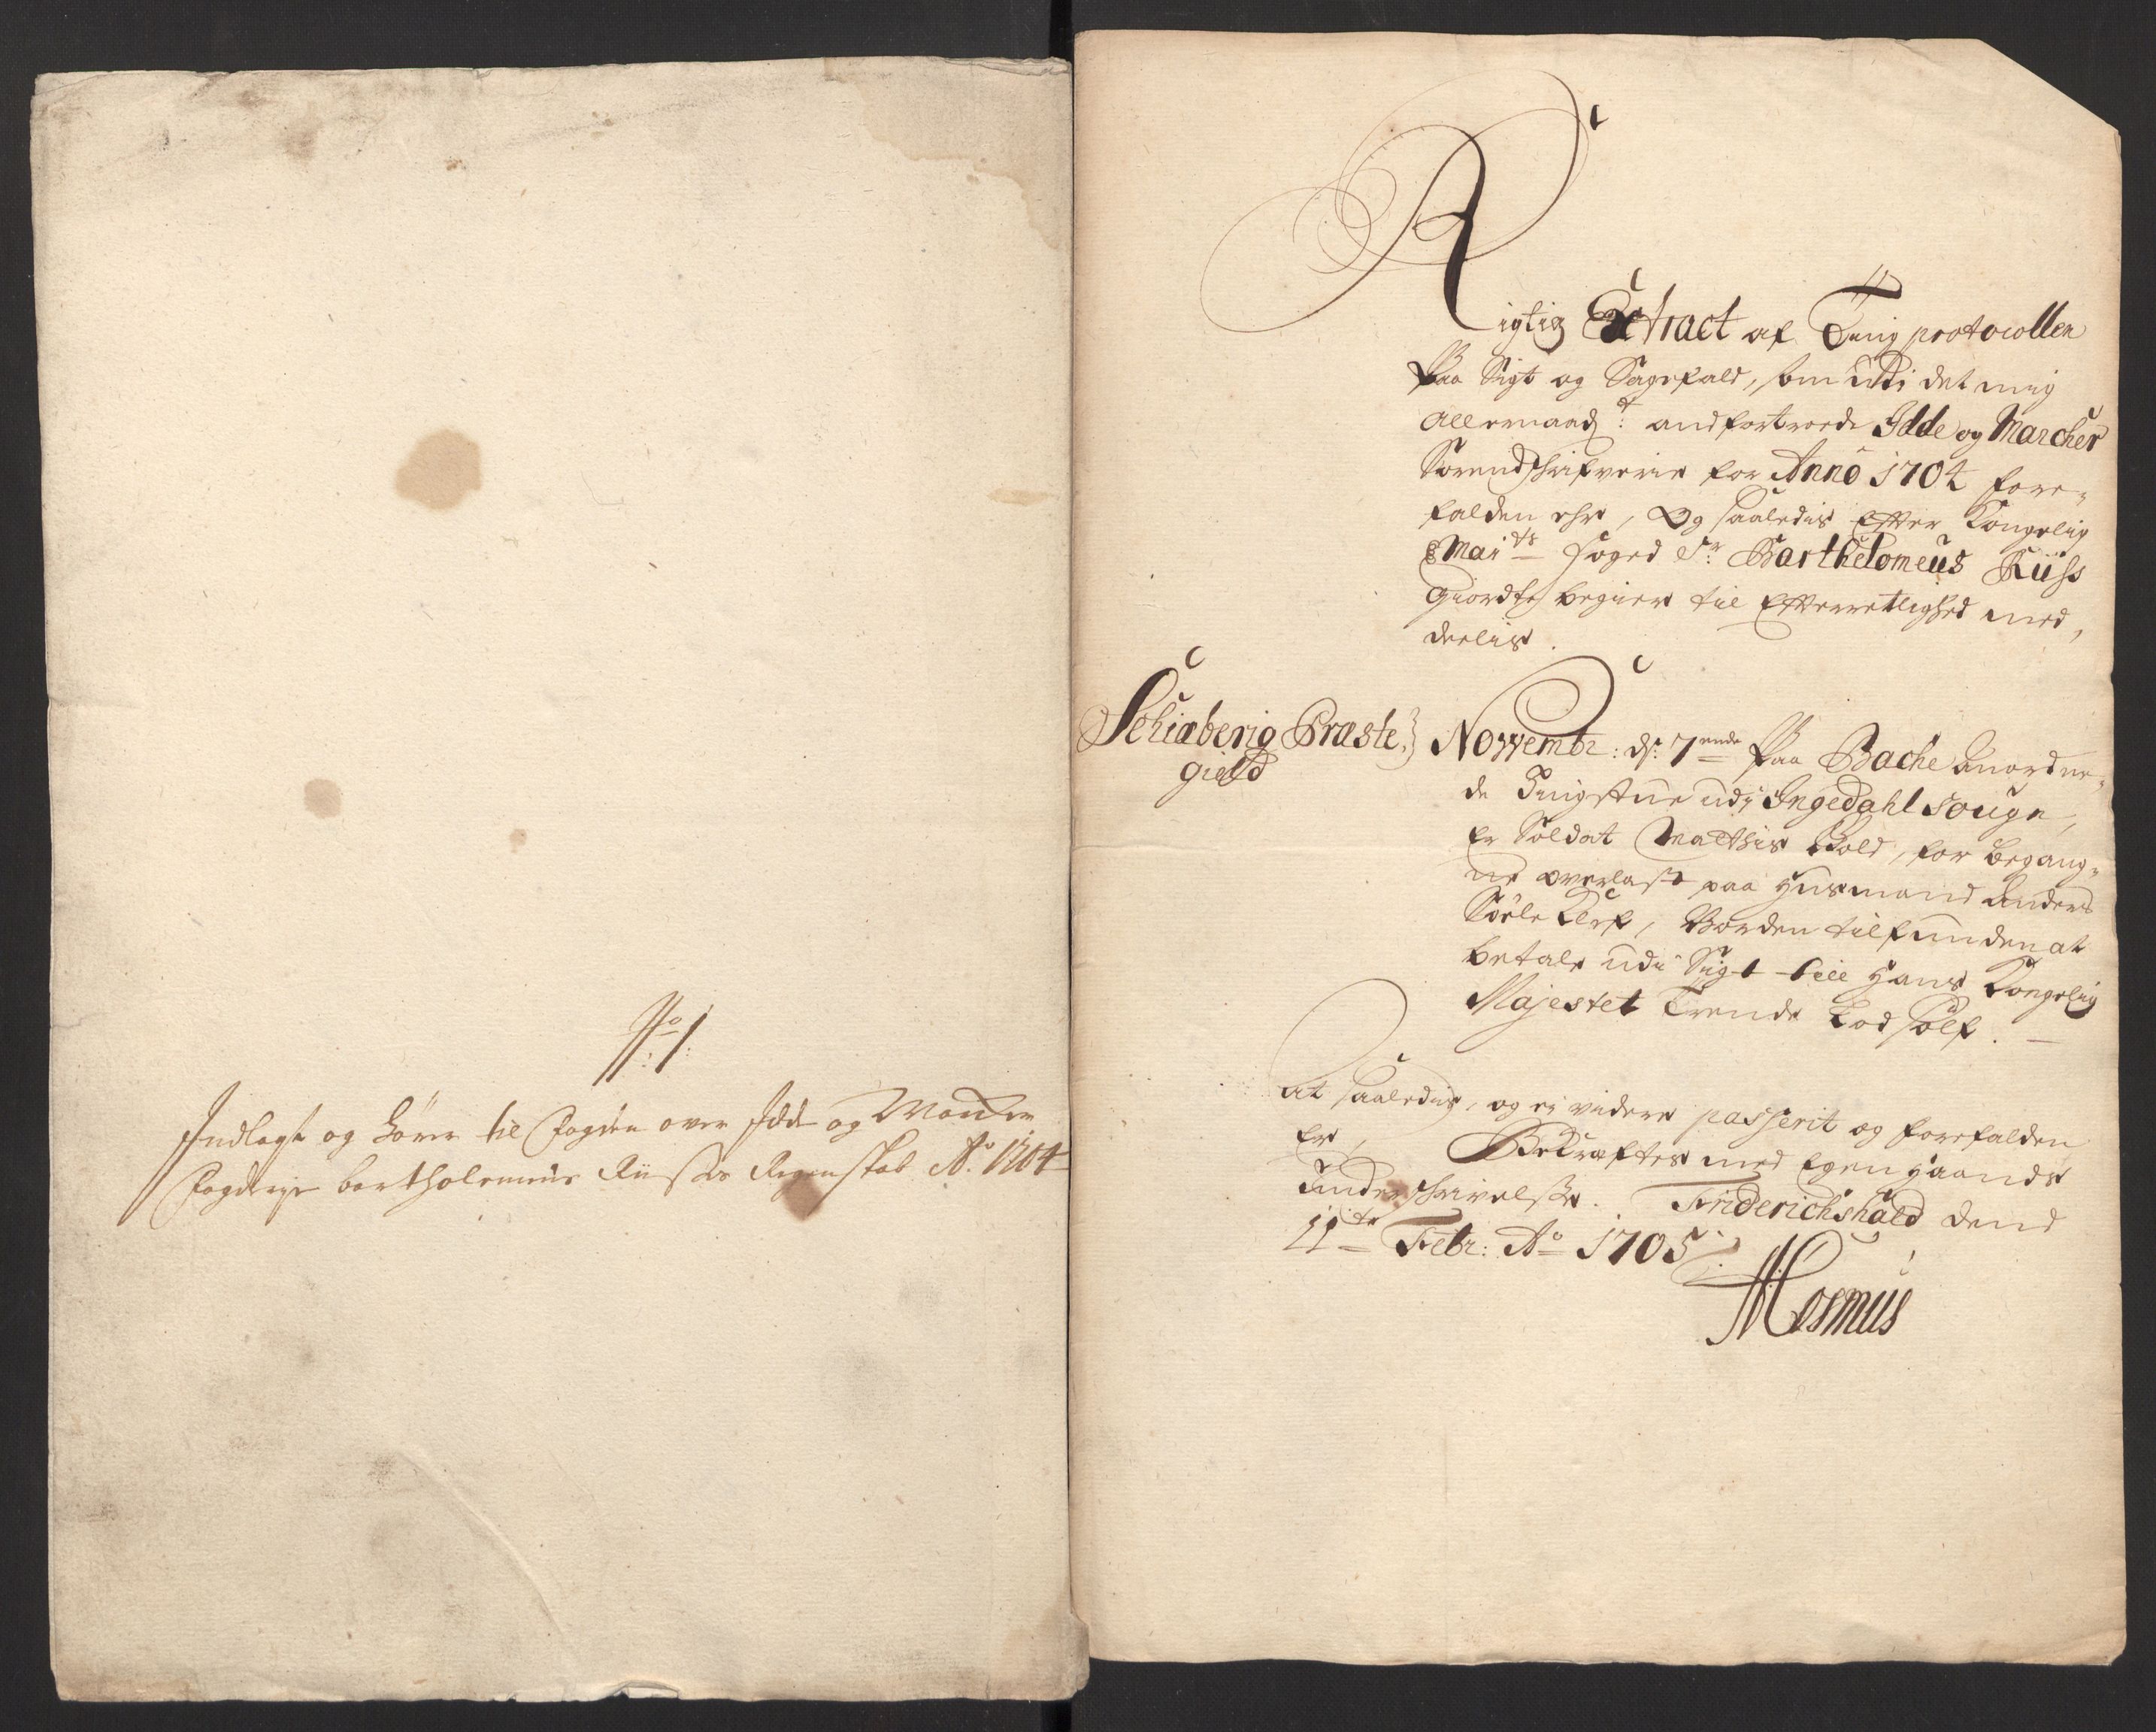 No: 1:
Indlagt og hører til Fogden over Idde og Marker
Fogderje Bartholomeus Rüsses Regenskab Ao: 1704
Rigtig Extract af Ting protocollen
Paa Sigt og Sagefald, som udi det mig
allernaadt: andfortroede Idde og Marcher
Sorendschrifverie for Anno 1704 fore-
falden ehr, Og saaledis Effter Kongelig
Maits Foged Sr: Barthelomeus Rüss
giordte begier til Effterretlighed med,
deelis.
Schiæberig Præste,
gield
Novembr: d: 7ende Paa Bache Anordne-
de Tingstue udj Ingedahl Sougn,
Er Soldat Matthis Hold, for begang-
ne Overlast paa Huusmand Anders
Torden tilfunden at
betale udi Sigt till Hans Kongelig
Majestet Trende Lod Sølf.
At saaledis, og ej videre passerit og forefalden
Er, Bekræftes med Egen Haands
Underschrivelse. Friderichshald dend
11te Febr: Ao 1705
Mosmus